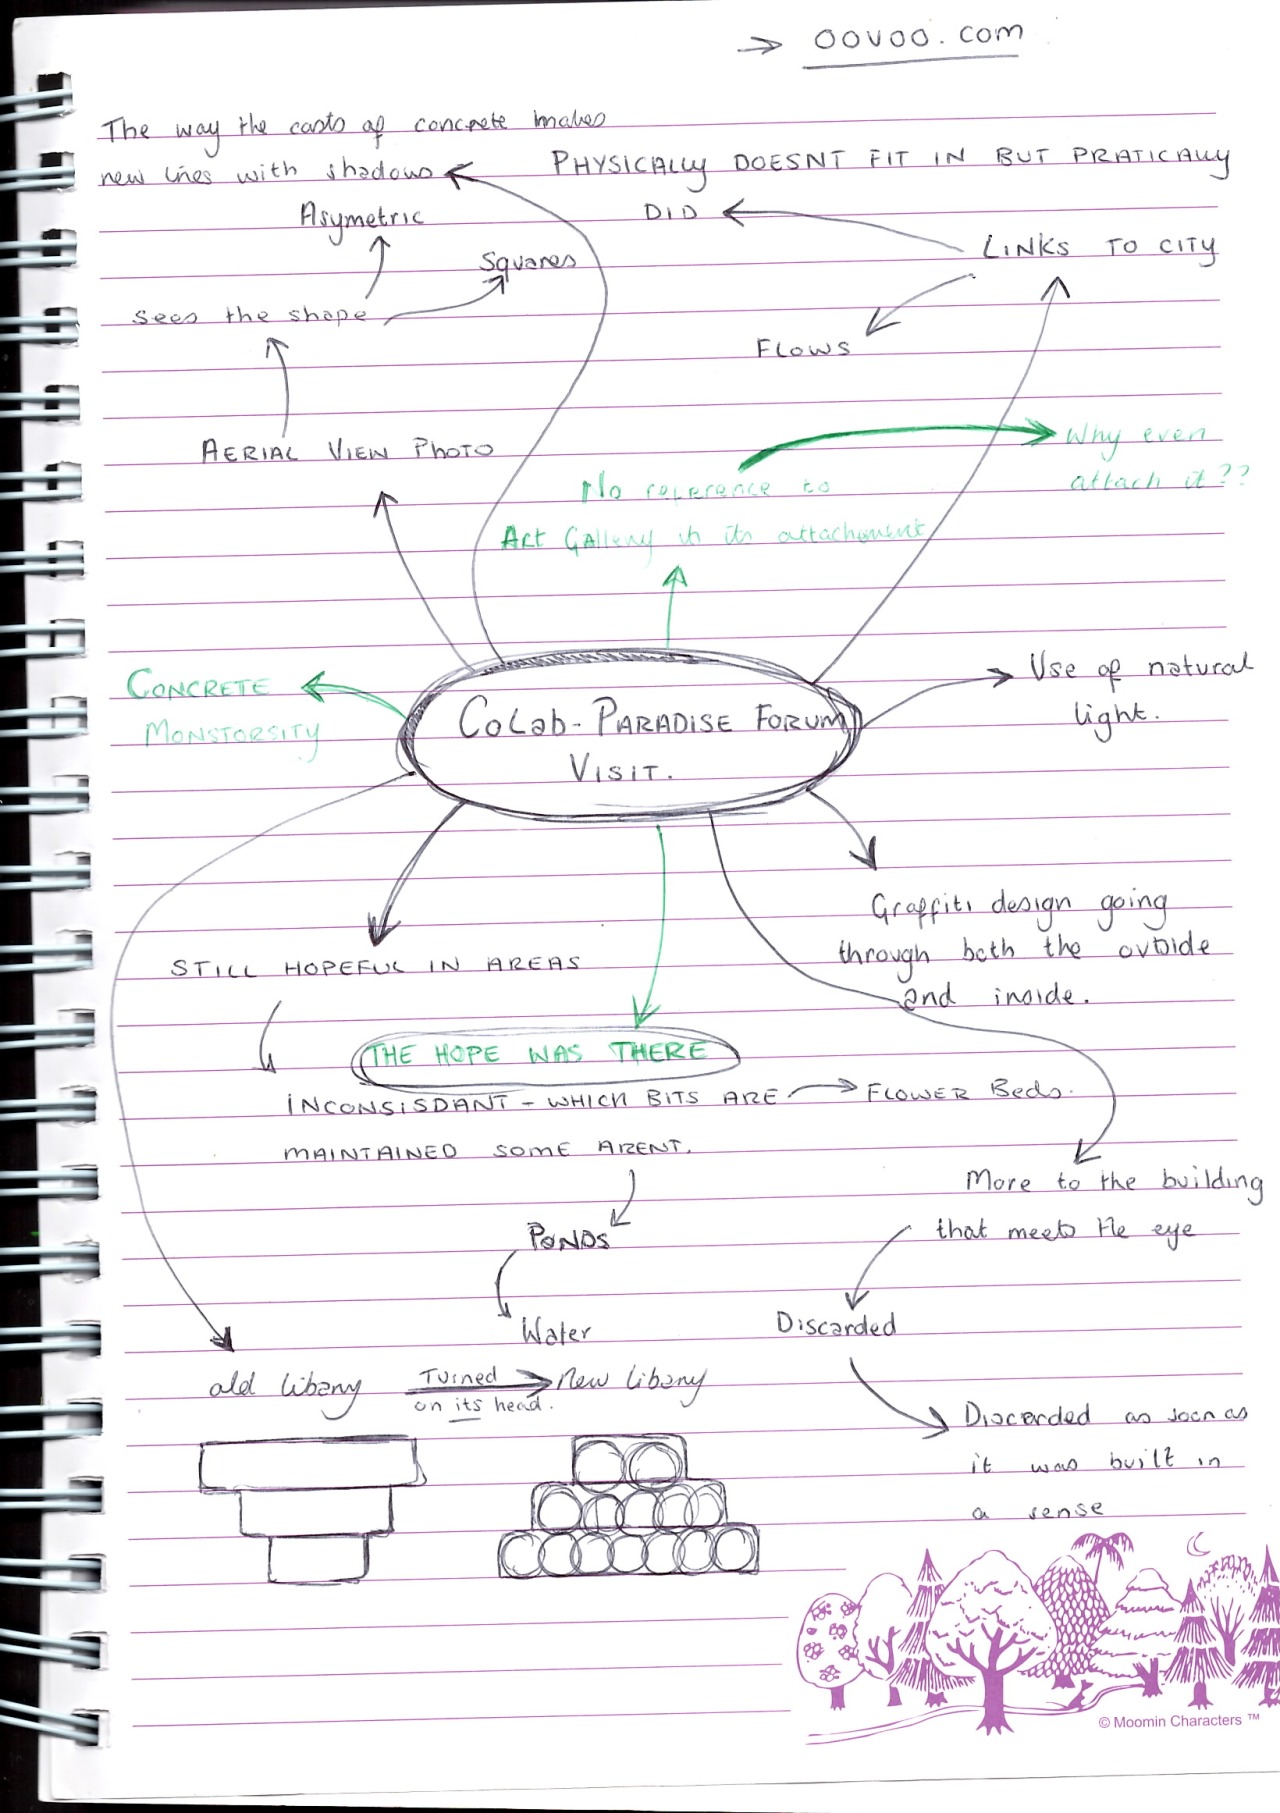 → oovoo.com
The way the casts of concrete makes
new lines with shadows
PHYSICALLY DOESNT FIT IN BUT PRATICALLY
DID
Asymetric
LINKS TO CITY
Squares
Sees the shape
FLOWS
AERIAL VIEW PHOTO
Why even
attach it??
No reference to
Art Gallery in its attachment
Use of natural
light.
CONCRETE
MONSTORSITY
CoLab - PARADISE FORUM
VISIT.
Graffiti design going
through both the outside
and inside.
STILL HOPEFUL IN AREAS
THE HOPE WAS THERE
INCONSISDANT - WHICH BITS ARE → FLOWER Beds.
MAINTAINED SOME ARENT.
More to the building
that meets the eye
PONDS
Water
Discarded
old libary
Turned
on its head.
New libary
Discarded as soon as
it was built in
a sense
© Moomin Characters ™